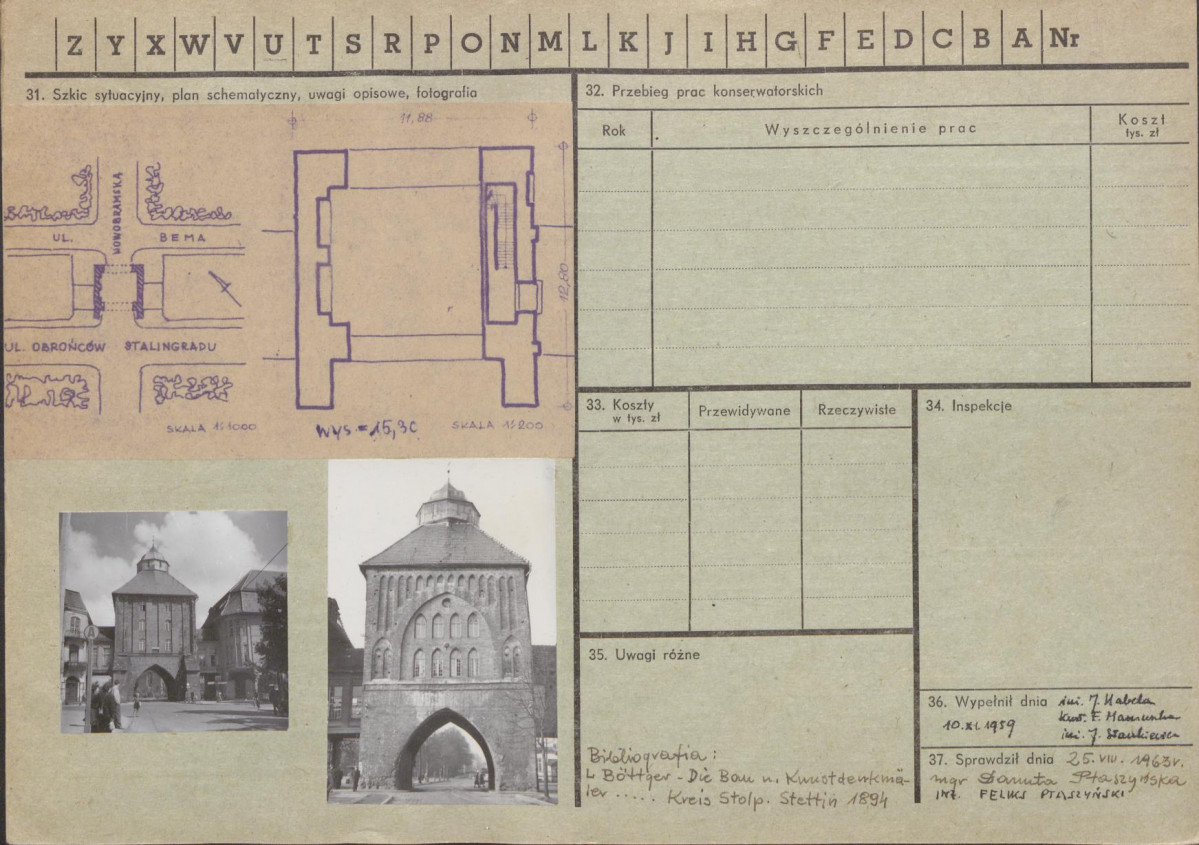 Z Y X W V U T S R P O N M L K J I H G F E D C B A Nr
31. Szkic sytuacyjny, plan schematyczny, uwagi opisowe, fotografia
11,88
12,80
NOWOBRAMSKA
UL. BEMA
UL. OBROŃCÓW STALINGRADU
SKALA 1:1000
wys. = 15,30
SKALA 1:200
A
32. Przebieg prac konserwatorskich
Rok
Wyszczególnienie prac
Koszt
tys. zł
33. Koszty
w tys. zł
Przewidywane
Rzeczywiste
34. Inspekcje
35. Uwagi różne
Bibliografia:
L Böttger - Die Bau u. Kunstdenkmä-
ler ..... Kreis Stolp. Stettin 1894
36. Wypełnił dnia
10.XI.1959
inż. J.
F.
inż. J.
37. Sprawdził dnia 25.VIII.1963r.
mgr Danuta Ptaszyńska
inż. FELIKS PTASZYŃSKI